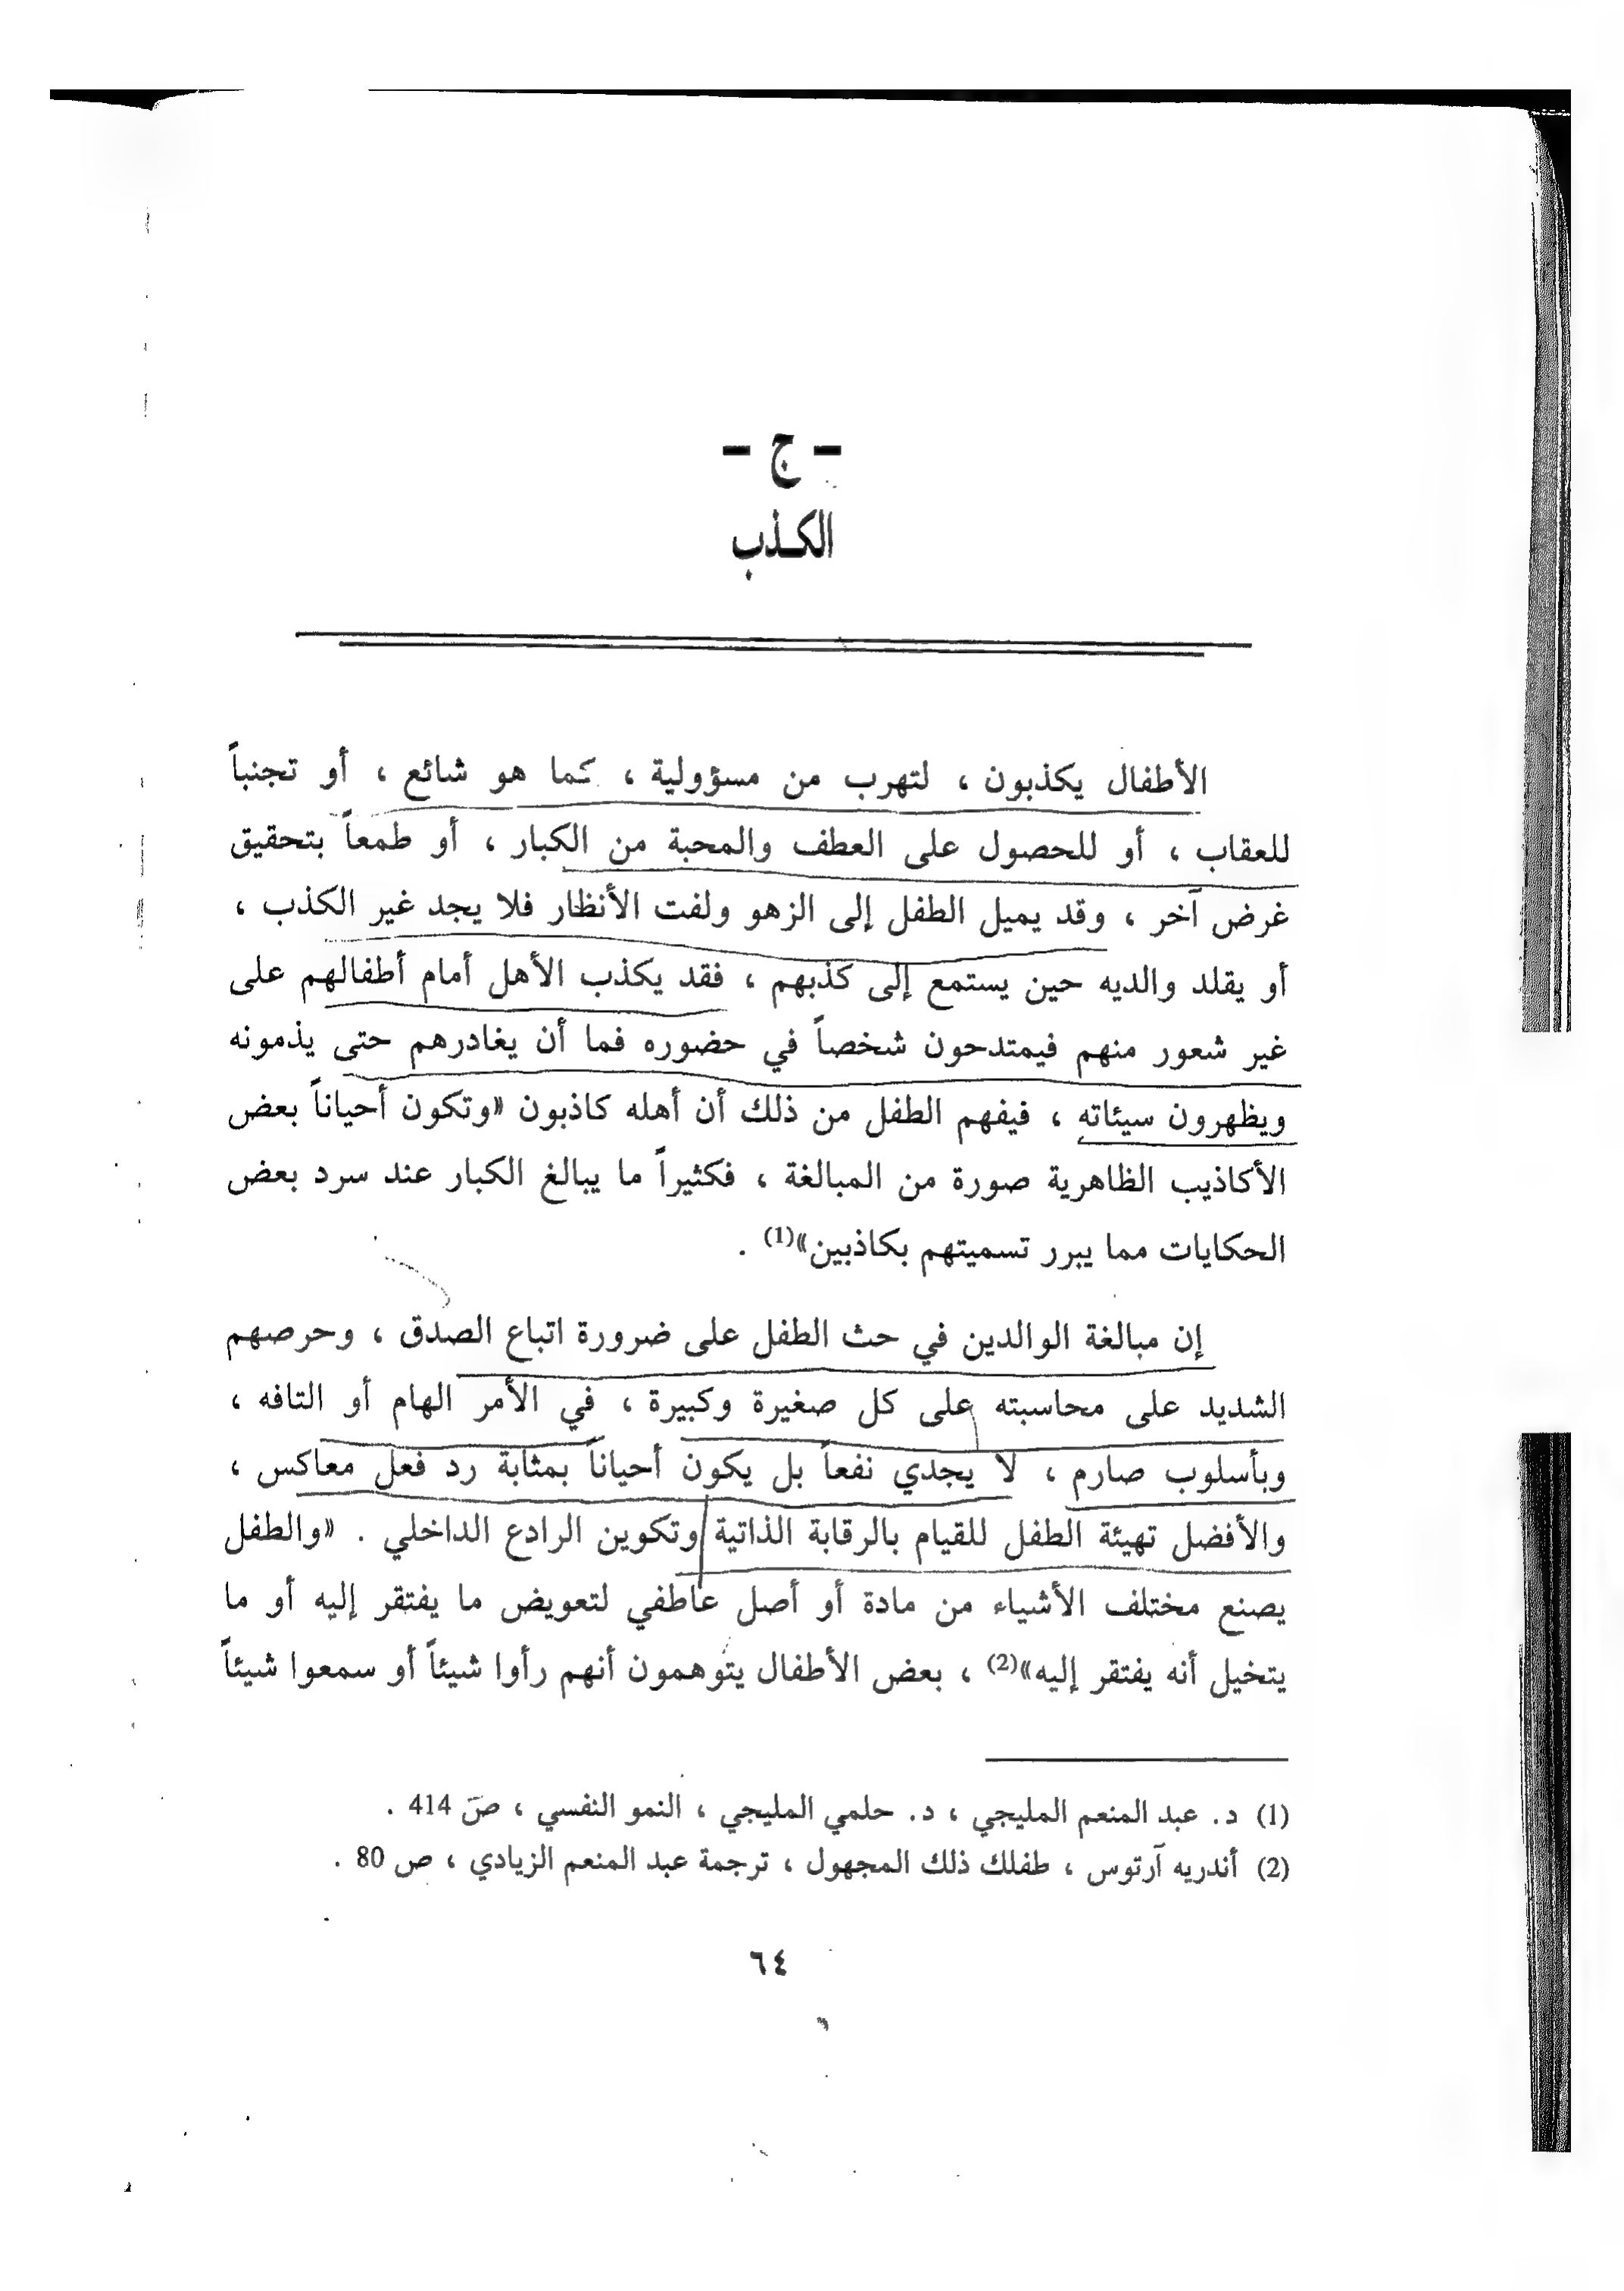 - ج -
الكـذب
الأطفال يكذبون ، لتهرب من مسؤولية ، كما هو شائع ، أو تجنباً
للعقاب ، أو للحصول على العطف والمحبة من الكبار ، أو طمعاً بتحقيق
غرض آخر ، وقد يميل الطفل إلى الزهو ولفت الأنظار فلا يجد غير الكذب ،
أو يقلد والديه حين يستمع إلى كذبهم ، فقد يكذب الأهل أمام أطفالهم على
غير شعور منهم فيمتدحون شخصاً في حضوره فما أن يغادرهم حتى يذمونه
ويظهرون سيئاته ، فيفهم الطفل من ذلك أن أهله كاذبون «وتكون أحياناً بعض
الأكاذيب الظاهرية صورة من المبالغة ، فكثيراً ما يبالغ الكبار عند سرد بعض
الحكايات مما يبرر تسميتهم بكاذبين»(1) .
إن مبالغة الوالدين في حث الطفل على ضرورة اتباع الصدق ، وحرصهم
الشديد على محاسبته على كل صغيرة وكبيرة ، في الأمر الهام أو التافه ،
وبأسلوب صارم ، لا يجدي نفعاً بل يكون أحياناً بمثابة رد فعل معاكس ،
والأفضل تهيئة الطفل للقيام بالرقابة الذاتية وتكوين الرادع الداخلي . «والطفل
يصنع مختلف الأشياء من مادة أو أصل عاطفي لتعويض ما يفتقر إليه أو ما
يتخيل أنه يفتقر إليه»(2) ، بعض الأطفال يتوهمون أنهم رأوا شيئاً أو سمعوا شيئاً
(1) د. عبد المنعم المليجي ، د. حلمي المليجي ، النمو النفسي ، ص 414 .
(2) أندريه آرتوس ، طفلك ذلك المجهول ، ترجمة عبد المنعم الزيادي ، ص 80 .
٦٤